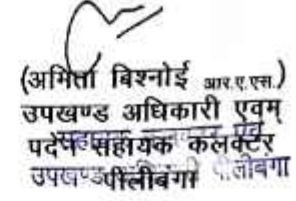 (अमिता बिश्नोई आर.ए.एस.)
उपखण्ड अधिकारी एवम्
पदेन सहायक कलक्टर
पीलीबंगा